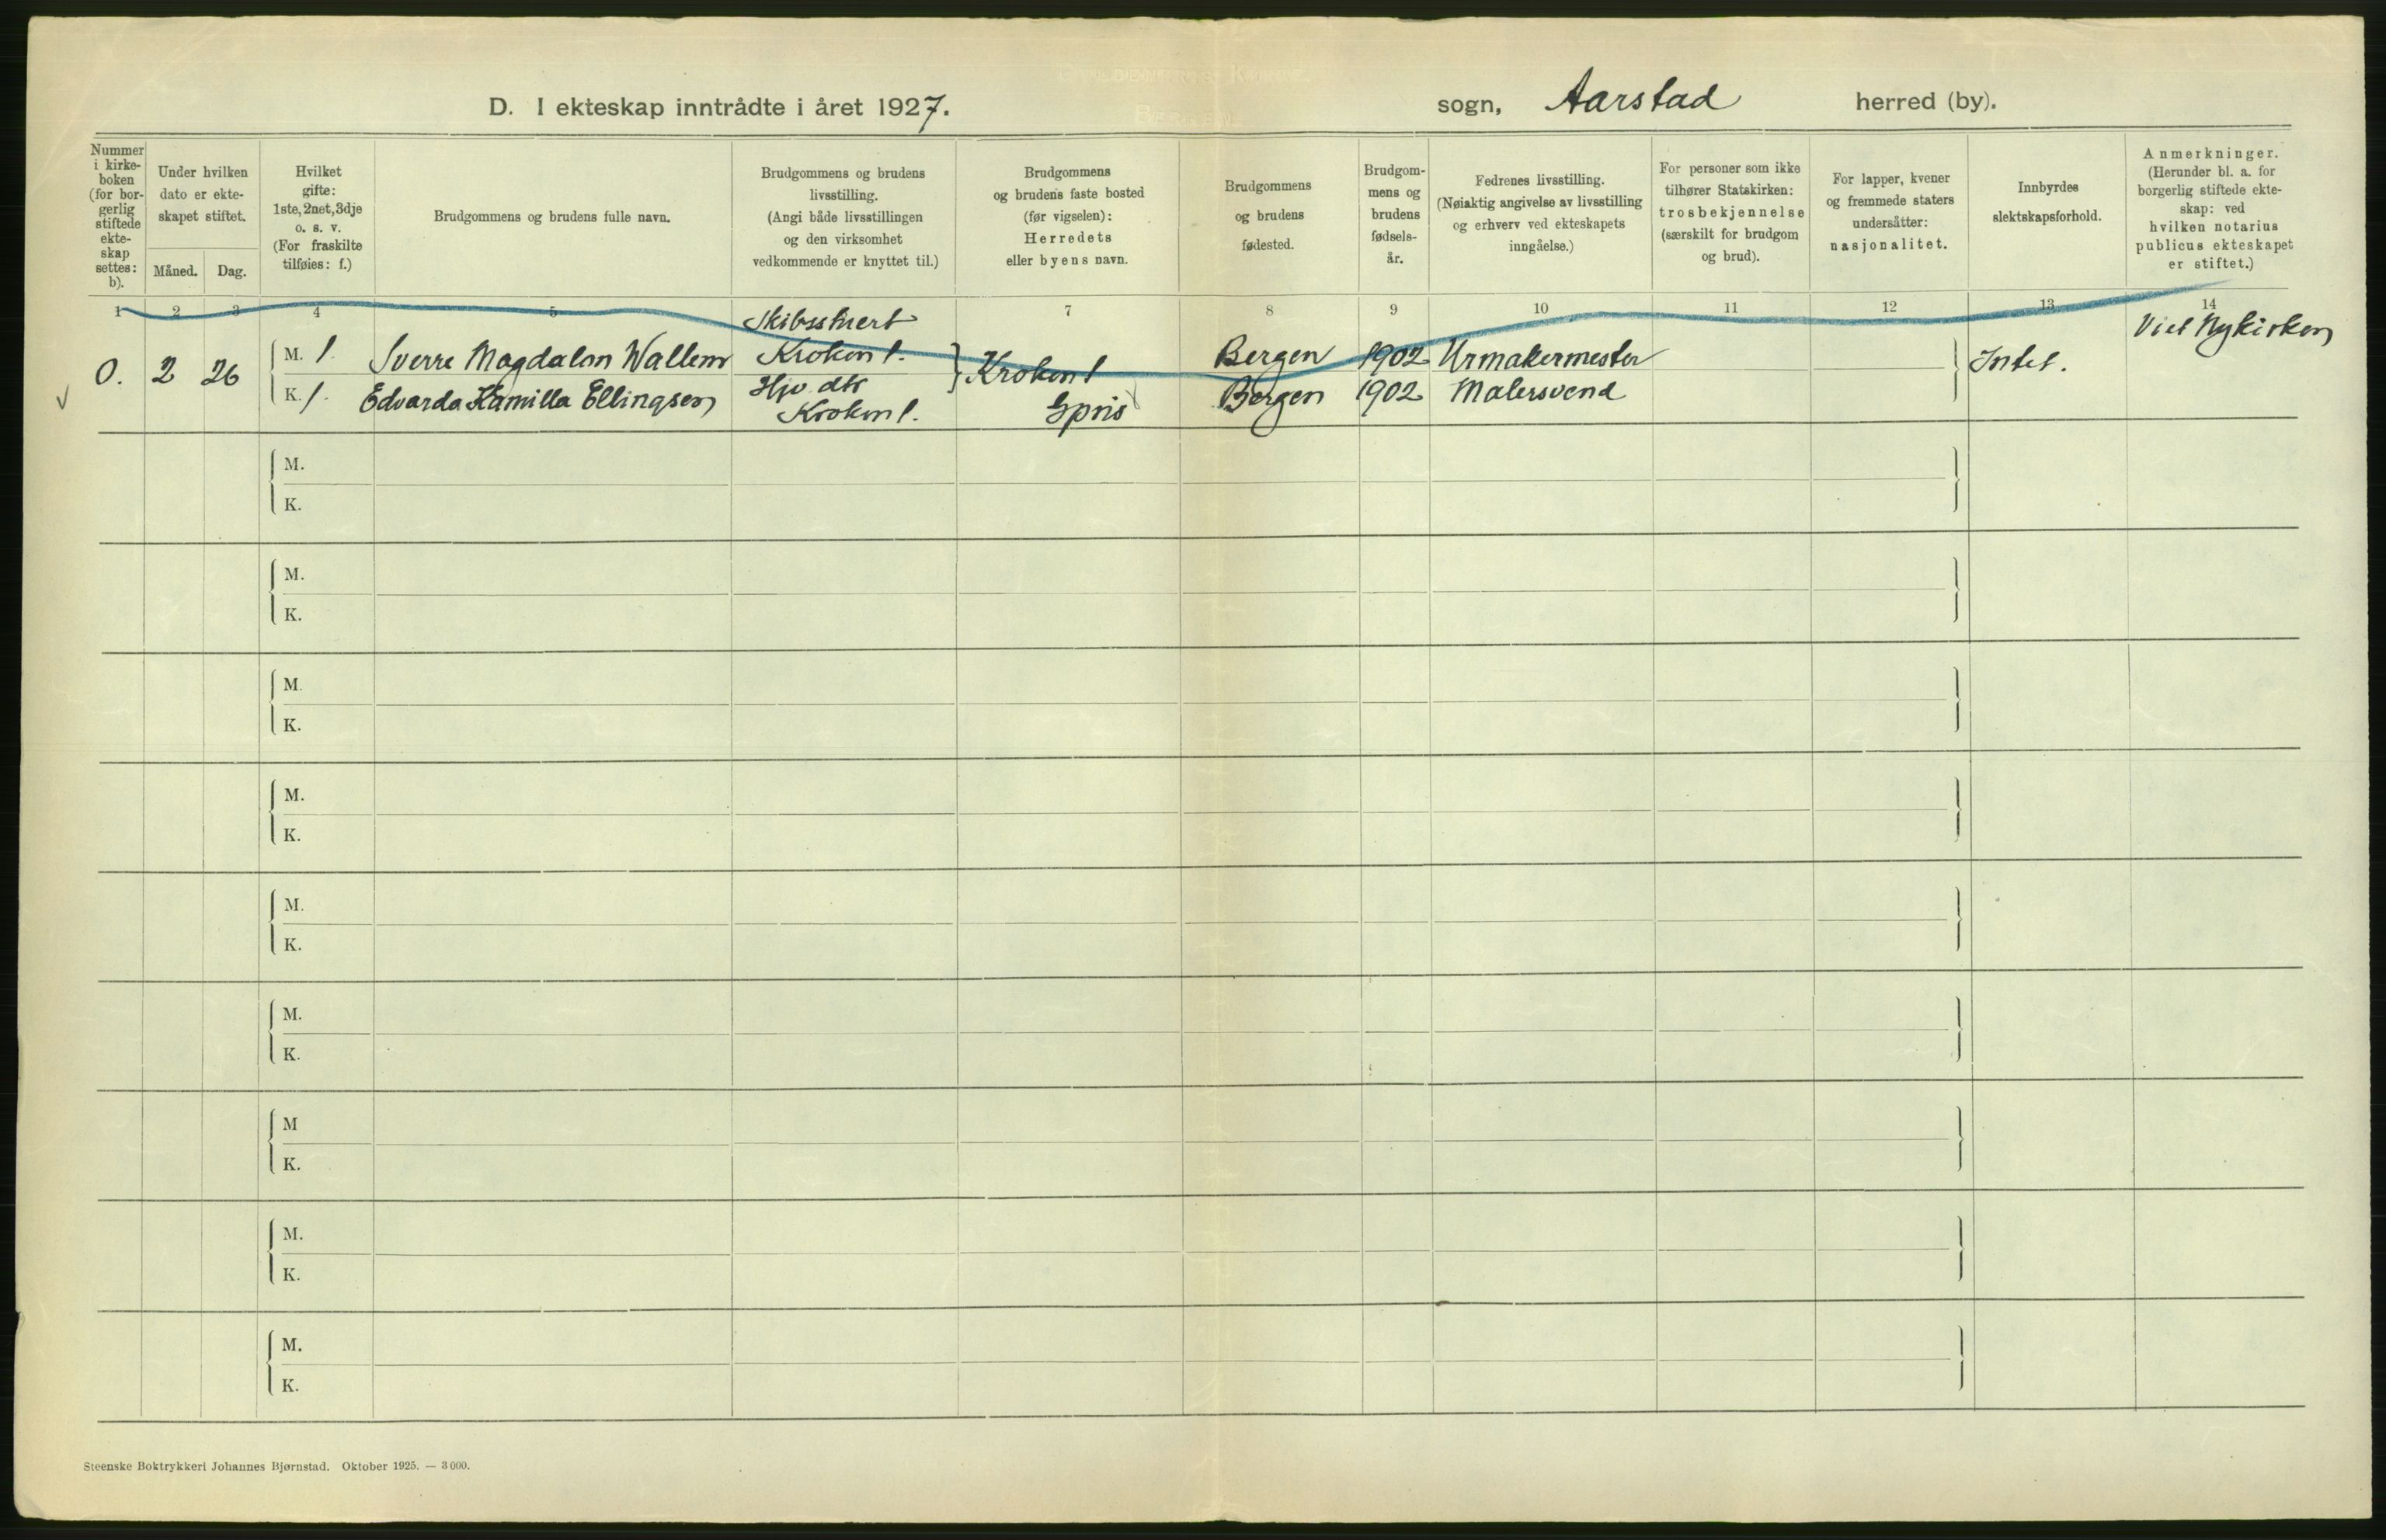 D. I ekteskap inntrådte i året 1927.
sogn, Aarstad herred (by).
Nummer
i kirke-
boken
(for bor-
gerlig
stiftede
ekte-
skap
settes:
b).
Under hvilken
dato er ekte-
skapet stiftet.
Måned. Dag.
Hvilket
gifte:
1ste, 2net, 3dje
o. s. v.
(For fraskilte
tilføies: f.)
Brudgommens og brudens fulle navn.
Brudgommens og brudens
livsstilling.
(Angi både livsstillingen
og den virksomhet
vedkommende er knyttet til.)
Brudgommens
og brudens faste bosted
(før vigselen):
Herredets
eller byens navn.
Brudgommens
og brudens
fødested.
Brudgom-
mens og
brudens
fødsels-
år.
Fedrenes livsstilling.
(Nøiaktig angivelse av livsstilling
og erhverv ved ekteskapets
inngåelse.)
For personer som ikke
tilhører Statskirken:
trosbekjennelse
(særskilt for brudgom
og brud).
For lapper, kvener
og fremmede staters
undersåtter:
nasjonalitet.
Innbyrdes
slektskapsforhold.
Anmerkninger.
(Herunder bl. a. for
borgerlig stiftede ekte-
skap: ved
hvilken notarius
publicus ekteskapet
er stiftet.)
1 2 3 4 5 7 8 9 10 11 12 13 14
0. 2 26
M. 1. Sverre Magdalon Wallem
Skibsstuert
Kroken 1.
Kroken 1
Bergen 1902 Urmakermester
Intet.
Viet Nykirken
K. 1. Edvarda Kamilla Ellingsen
Hjv. dtr
Kroken 1.
Bergen 1902 Malersvend
M.
K.
M.
K.
M.
K.
M.
K.
M.
K.
M.
K.
M
K.
M.
K.
M.
K.
Steenske Boktrykkeri Johannes Bjørnstad. Oktober 1925. — 3000.